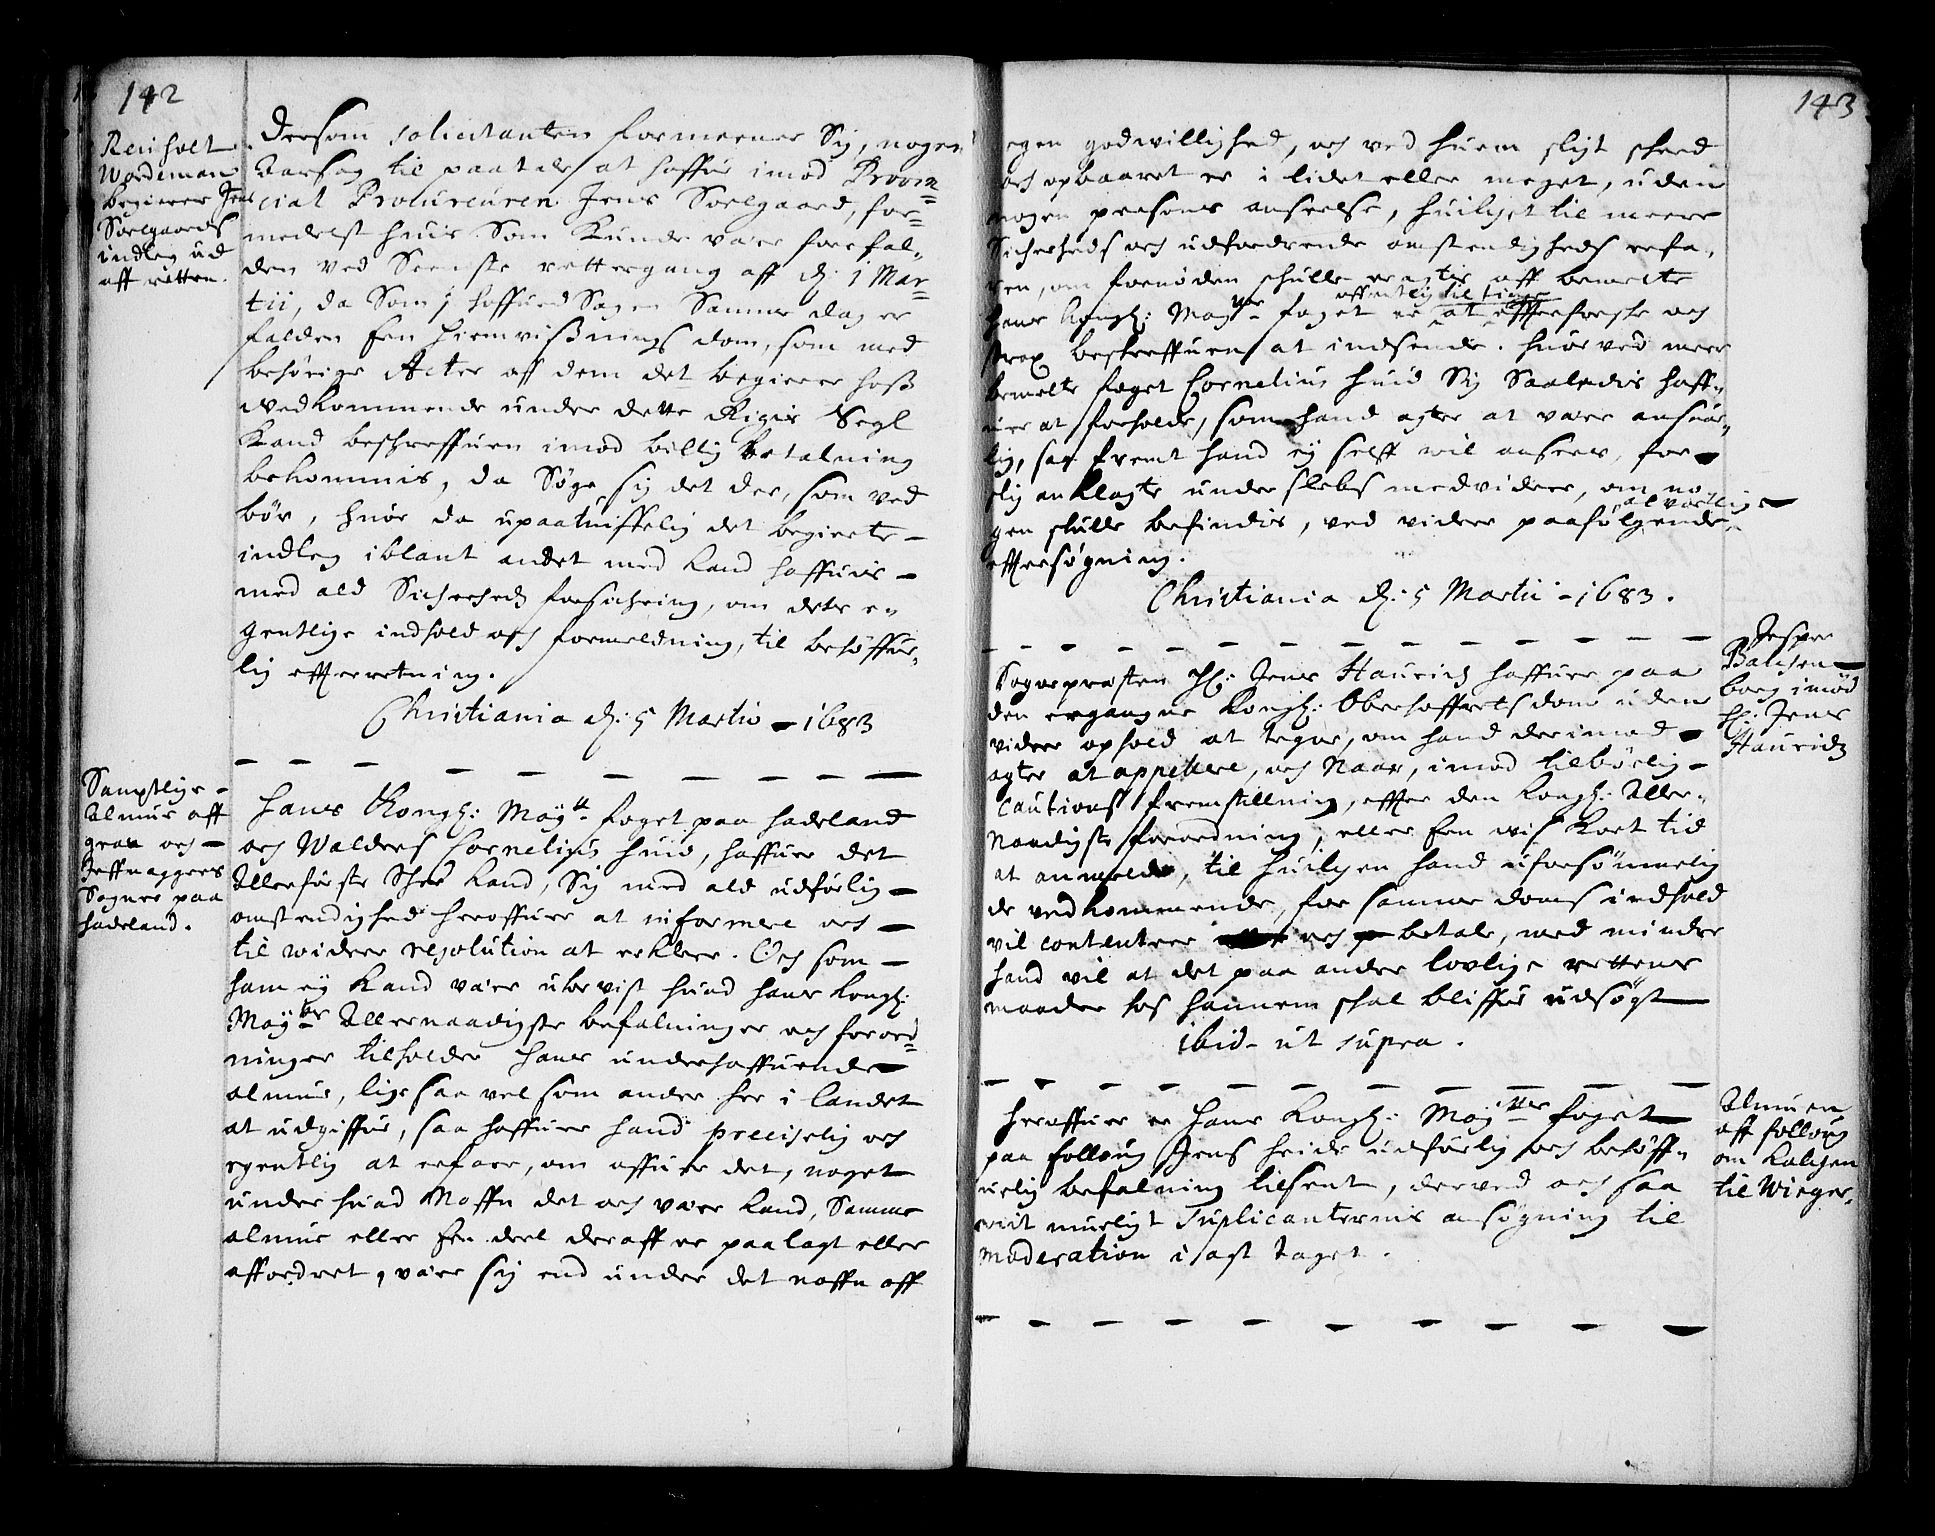 142
Reinholt
Wordeman
begierer Jens
Søelgaards
indleg ud
aff retten.
Dersom solicitanten formeener Sig, nogen
Aarsag til paatale at haffue imod Provin=
cial Procureuren Jens Søelgaard, for=
medelst huis Som Kunde være forefal=
den ved Seeniste rettergang aff d: 1 Mar=
tii, da Som i haffued Sagen Samme dag er
falden Een hiemvißnings dom, som med
behørige Acter af dem det begierer hoß
Vedkommende under dette Rigis Segl
Kand beschreffuen imod billig betalning
bekommis, da Søge sig det der, som ved
bør, huor da upaatuiffelig det begierte
indleg iblant andet med Kand haffuis
med ald Sicherheds forsichring, om dets e=
gentlige indhold och formeldning, til behøffue=
lig efterretning.
Christiania d: 5 Martii 1683
Samptlige
Almue aff
gran och
Jeffnaggers
Sogner paa
hadeland.
Hans Kongl: Mayts foget paa hadeland
och Walders Cornelius Huid, haffuer det
Allerførste Skee Kand, Sig med ald udførlig
omstendighed heroffuer at informere och
til widere resolution at erklere. Och som
ham ey Kand være ubevist huad hans Kongl:
Mayts Allernaadigste befalninger och forord=
ninger tilholder hans underhaffuende
almue, lige saa vel som andre her i landet
at udgiffue, saa haffuer hand preciselig och
egentlig at erfare, om offuer det, noget
under huad Naffn det och være Kand, Samme
almue eller Een deel deraff er paalagt eller
affordret, være sig end under det naffn aff
143
egen godwillighed, och ved huem sligt skeed
och opbaaret er i lidet eller meget, uden
nogen persons anseelse, huilchet til meere
Sicherheds och udfordrende omstendigheds erfa=
ren, om fornøden skulle eragtis aff bemelte
offentlig til tinge
hans Kongl: Mayts foget er at efterforske och
strax beskreffuen at indsende. huor ved meer
bemelte foget Cornelius Huid Sig Saaledis haff=
uer at forholde, som hand agter at være ansuar=
lig, saa fremt hand ey self wil ansees, for
slig anklagte underslebs medvidere, om no
alvorlige
gen skulle befindis, ved videre paafølgende
eftersøgning.
Christiania d: 5 Martii 1683.
Jesper
Balchen
borg imod
Hr: Jens
Hauridz
Sognepræsten Hr: Jens Hauridz haffuer paa
den ergangne Kongl: Oberhoffrets dom uden
videre ophold at tegne, om hand derimod
agter at appellere, och Naar, imod tilbørlig
cautions fremstilling, efter den Kongl: Aller=
Naadigste forordning, eller Een vis Kort tid
at anmelde, til huilchen hand uforsømmelig
de vedkommende, for samme doms indhold
vil contentere och betale, med mindre
hand vil at det paa andre lovlige rettens
maader hos hannem skal bliffue udsøgt
ibid ut supra.
Almuen
aff folloug
om Kalchen
til Winger.
Heroffuer er Hans Kongl: Mayts foget
paa follaug Jens heide udførlig och behøff=
uelig befalning tilsent, derved och saa
vit mueligt Suplicanternis ansøgning til
moderation i agt taget.